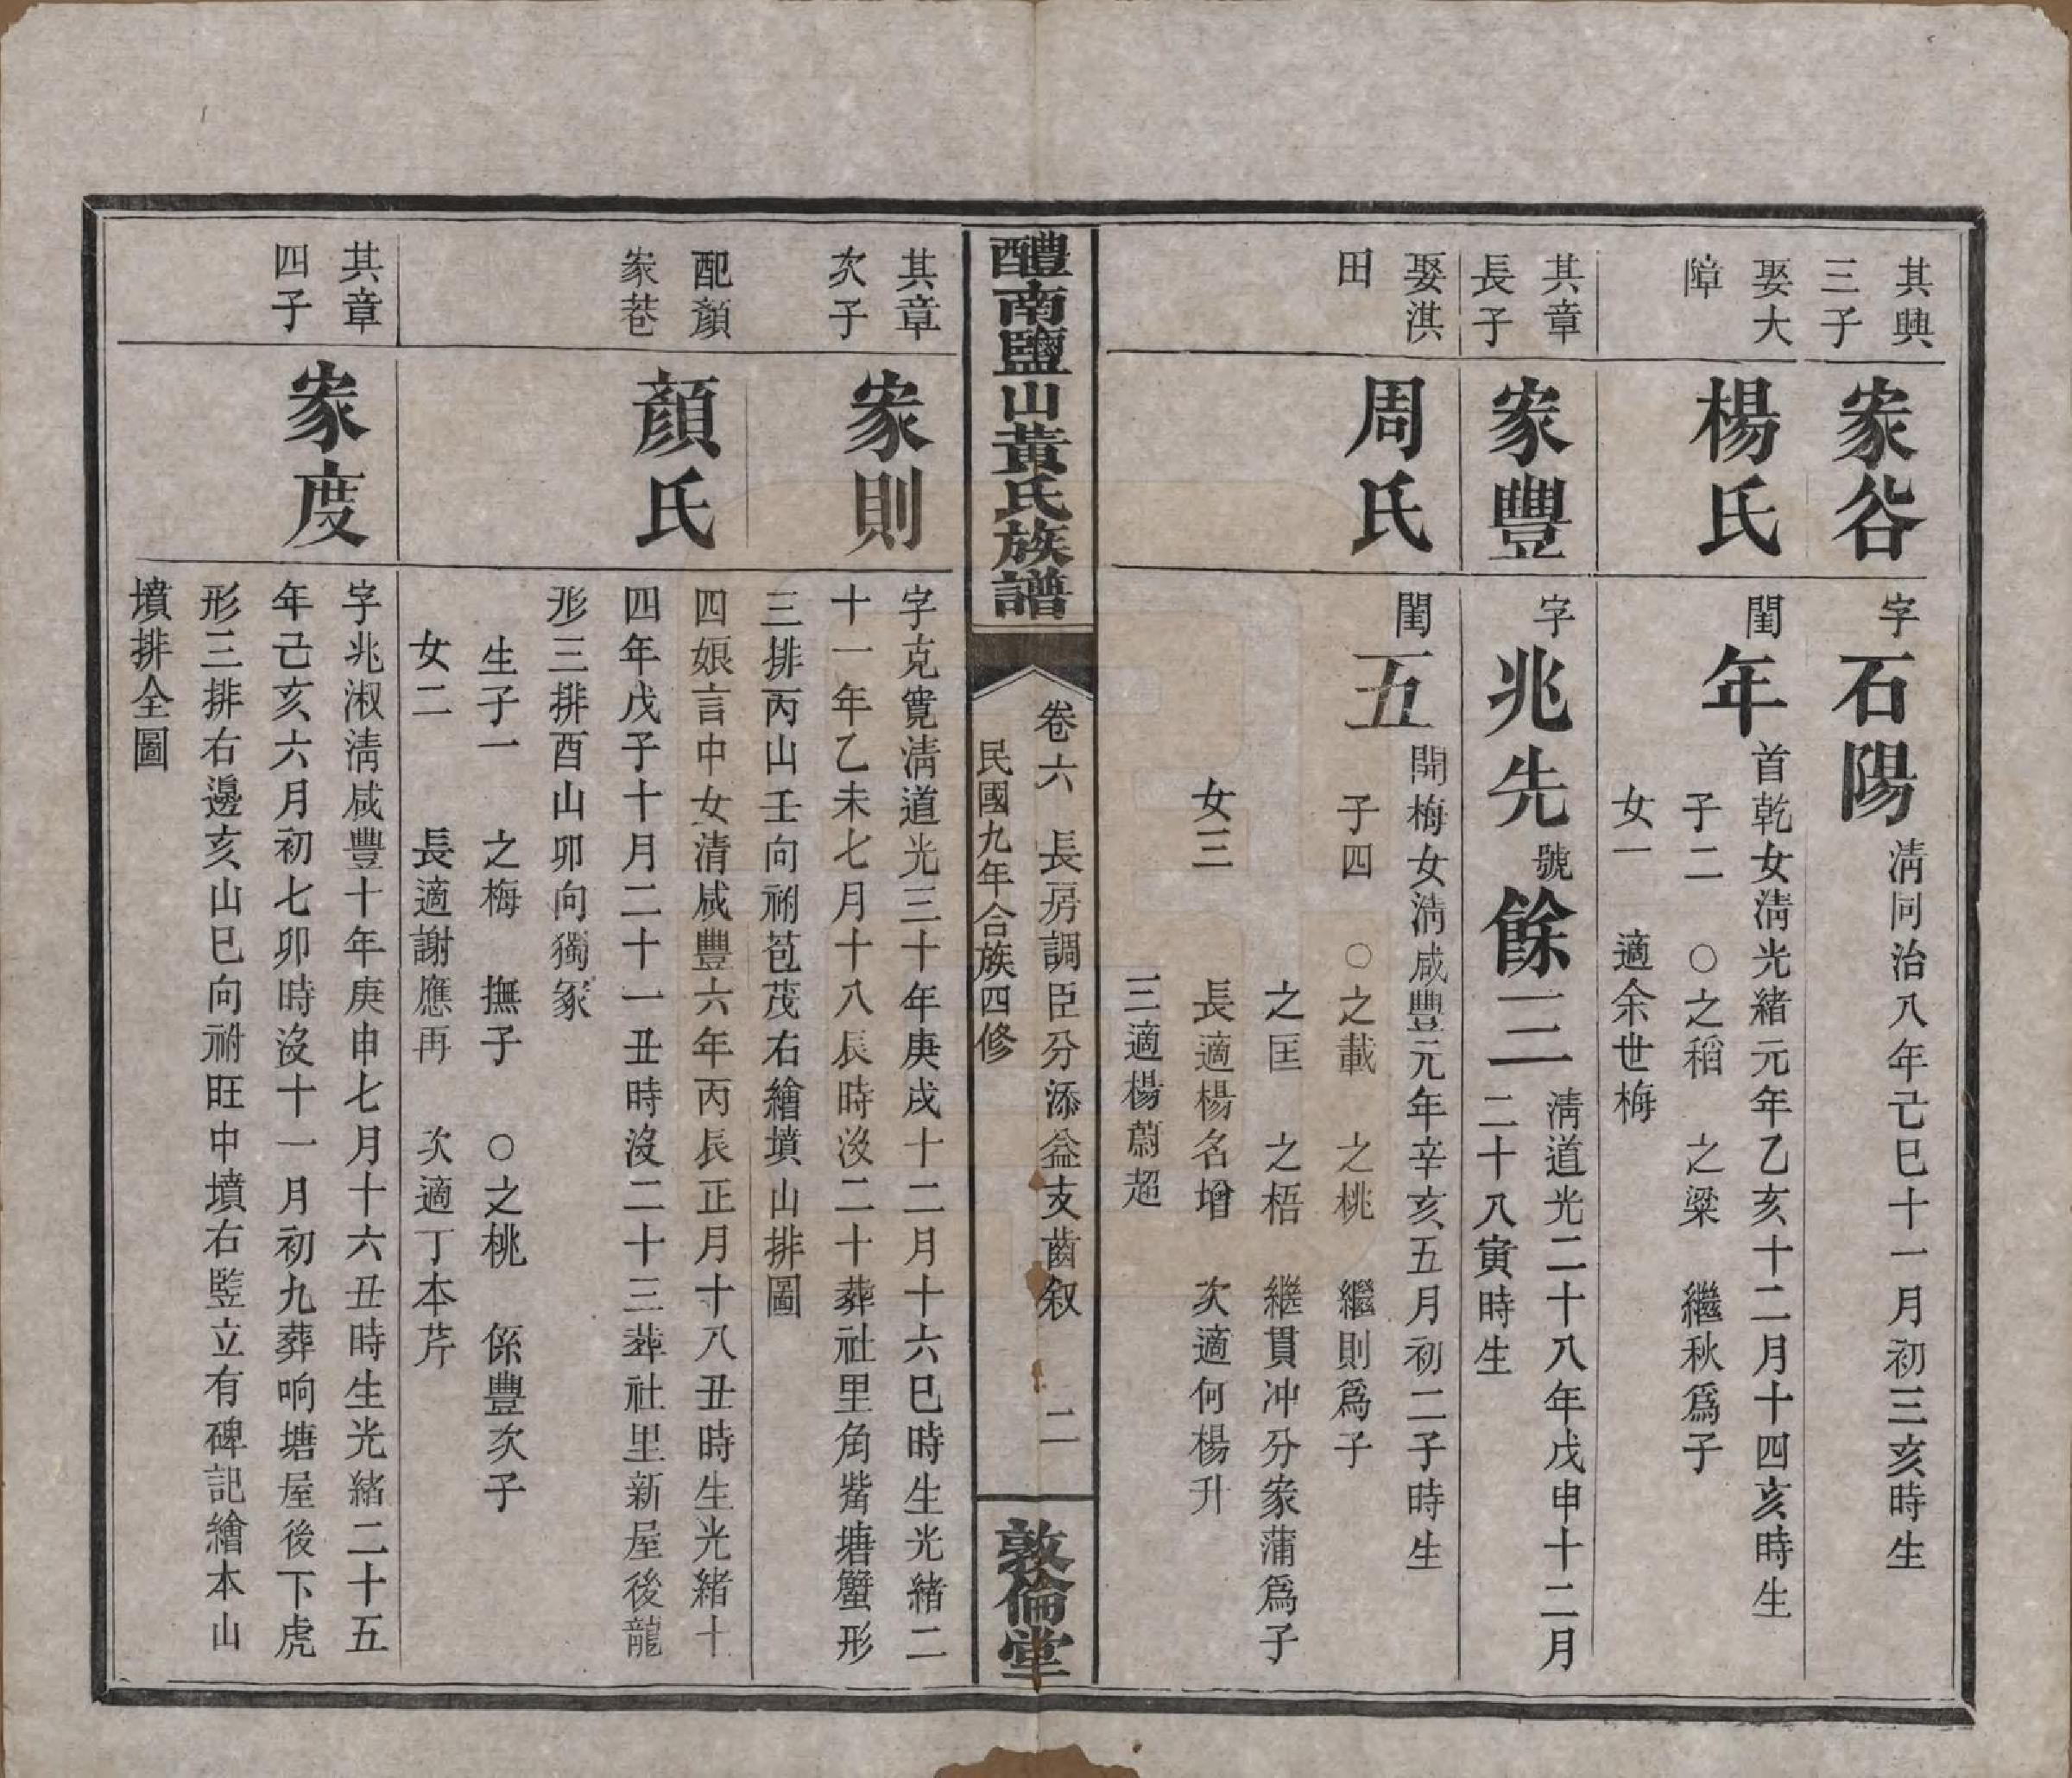 其興
三子
家谷
字石陽清同治八年己巳十一月初三亥時生
娶大
障
楊氏
閨年首乾女淸光緒元年乙亥十二月十四亥時生
子二　○之稻　之粱　繼秋爲子
女一　適余世梅
其章
長子
家豐
字兆先號餘三清道光二十八年戊申十二月
二十八寅時生
娶淇
田
周氏
閨五開梅女淸咸豐元年辛亥五月初二子時生
子四　○之載　之桃　繼則爲子
之匡　之梧　継貫冲分家蒲爲子
女三　長適楊名增　次適何楊升
三適楊蔚超
醴南鹽山黃氏族譜
卷六　長房調臣分添益支齒叙　二
民國九年合族四修
敦倫堂
其章
次子
家則
字克寬淸道光三十年庚戌十二月十六巳時生光緒二
十一年乙未七月十八辰時沒二十葬社里角觜塘蟹形
三排丙山壬向祔苞茂右繪墳山排圖
配顏
家巷
顏氏
四娘言中女清咸豐六年丙辰正月十八丑時生光緒十
四年戊子十月二十一丑時沒二十三葬社里新屋後龍
形三排酉山卯向獨冢
生子一　之梅　撫子　○之桃　係豐次子
女二　長適謝應再　次適丁本芹
其章
四子
家度
字兆淑淸咸豐十年庚申七月十六丑時生光緒二十五
年己亥六月初七卯時沒十一月初九葬响塘屋後下虎
形三排右邊亥山巳向祔旺中墳右監立有碑記繪本山
墳排全圖